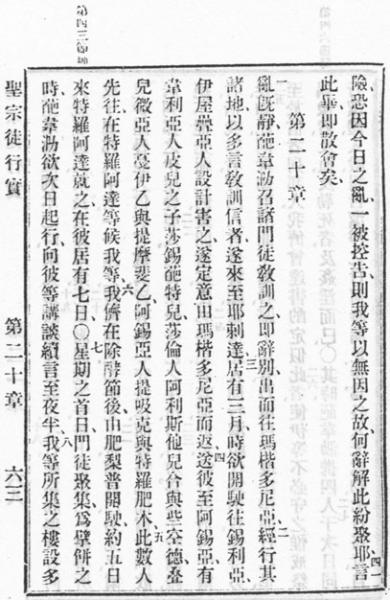 險恐因今日之亂一被控告則我等以無因之故何辭解此紛聚耶四一言
此畢卽散會矣
第二十章
一亂旣靜葩韋泐召諸門徒敎訓之卽辭別出而往瑪楷多尼亞二經行其
諸地以多言敎訓信者遂來至耶剌達三居有三月時欲開駛往錫利亞
伊屋疊亞人設計害之遂定意由瑪楷多尼亞而返四送彼至阿錫亞有
韋利亞人皮兒之子莎錫葩特兒莎倫人阿利斯他兒合與些空德桑
兒微亞人戞伊乙與提摩斐乙阿錫亞人提吸克與特羅肥木五此數人
先往在特羅阿達等候我等六我儕在除酵節後由肥梨普開駛約五日
來特羅阿達就之在彼居有七日〇七星期之首日門徒聚集爲擘餅之
時葩韋泐欲次日起行向彼等講談續言至夜半八我等所集之樓設多
聖宗徒行實 第二十章 六三